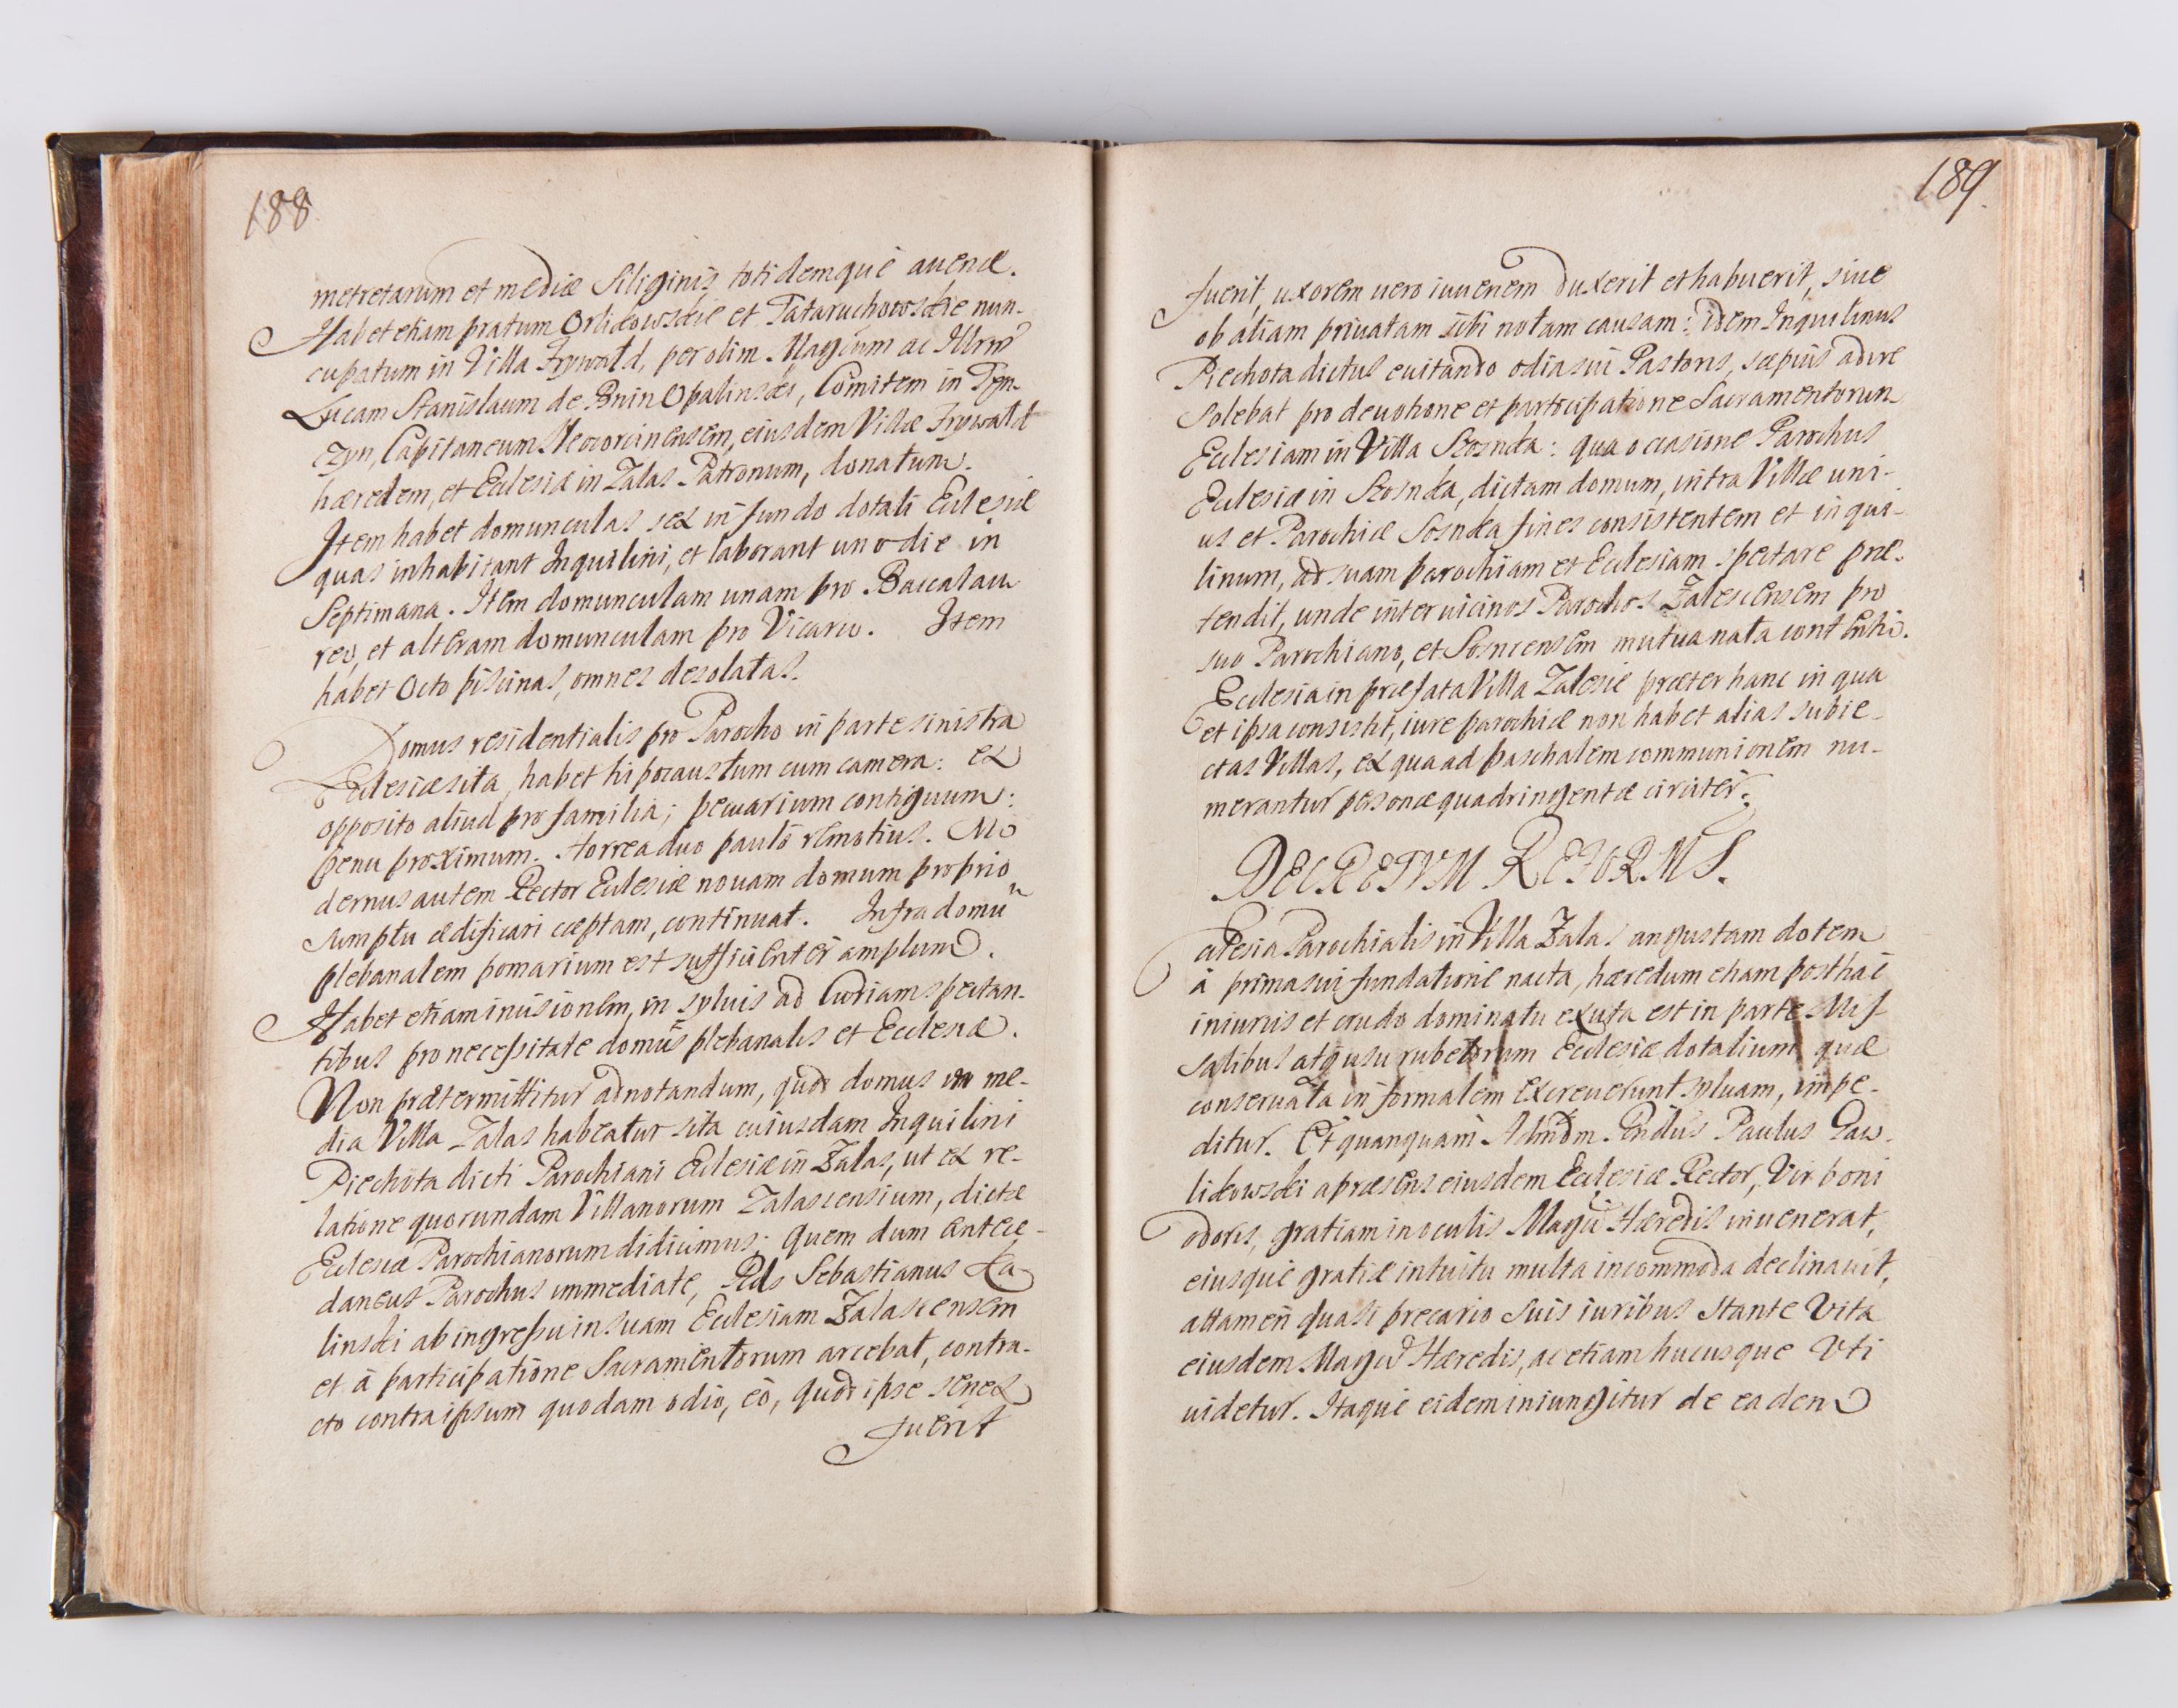 188
metretarum et mediæ Siliginis totidemque auenæ.
Habet etiam pratum Orlikowskie et Tataruchowskie nun-
cupatum in Villa Frywałd, per olim Magcum ac Illrm
Lucam Stanislaum de Bnin Opalinski, Comitem in Tęn-
czyn, Capitaneum Neocorcinensem, eiusdem Villæ Frywałd
hæredem, et Eclesiæ in Zalas Patronum, donatum.
Item habet domunculas sex in fundo dotali Eclesiæ
quas inhabitant Inquilini, et laborant uno die in
Septimana. Item domunculam unam pro Baccalau
reo, et alteram domunculam pro Vicario. Item
habet Octo piscinas, omnes desolatas.
Domus residentialis pro Parocho in parte sinistra
Eclesiæ sita, habet hipocaustum cum camera: ex
opposito aliud pro familia; pecuarium contiguum:
penu proximum. Horrea duo paulò remotius. Mo
dernus autem Rector Eclesiæ nouam domum proprio
sumptu ædificari cæptam, continuat. Infra domũ
plebanalem pomarium est sufficienter amplum.
Habet etiam incisionem, in syluis ad Curiam spectan-
tibus pro necessitate domus plebanalis et Ecclesiæ.
Non prætermittitur adnotandum, quod domus in me-
dia Villa Zalas habeatur sita cuiusdam Inquilini
Piechota dicti Parochiani Eclesiæ in Zalas, ut ex re-
latione quorundam Villanorum Zalascensium, dictæ
Eclesiæ Parochianorum didicimus: quem dum antece-
daneus Parochus immediate, Rds Sebastianus Ka
linski ab ingressu in suam Ecclesiam Zalascensem
et à participatione Sacramentorum arcebat, contra-
cto contra ipsum quodam odio, eò, quod ipse senex
fuerit
189.
fuerit, uxorem uero iuuenem duxerit et habuerit, siue
ob aliam priuatam sibi notam causam: idem Inquilinus
Piechota dictus euitando odia sui Pastoris, sæpius adire
solebat pro deuotione et participatione Sacramentorum
Ecclesiam in Villa Sosnka: qua occasione Parochus
Eclesiæ in Sosnka, dictam domum, intra Villæ uni-
us et Parochiæ Sosnka fines consistentem et inqui-
linum, ad suam parochiam et Ecclesiam spectare præ-
tendit, unde inter uicinos Parochos Zalescensem pro
suo Parochiano, et Sosncensem mutua nata contentio.
Ecclesia in præfata Villa Zalesie præter hanc in qua
et ipsa consistit, iure parochiæ non habet alias subie-
ctas Villas, ex qua ad paschalem communionem nu-
merantur personæ quadringentæ circiter.
DECRETVM REFORM S.
Eclesia Parochialis in Villa Zalas angustam dotem
à prima sui fundatione nacta, hæredum etiam posthac
iniuriis et crudo dominatu exuta est in parte Mis
salibus atq usu rubetorum Ecclesiæ dotalium, quæ
conseruata in formalem excreuerunt syluam, impe-
ditur. Et quanquam Admdm Rndus Paulus Paw-
likowski a præsens eiusdem Ecclesiæ Rector, Vir boni
odoris, gratiam in oculis Magci Hæredis inuenerat,
eiusque gratiæ intuitu multa incommoda declinauit,
attamen quasi precario suis iuribus stante Vita
eiusdem Magci Hæredis, ac etiam hucusque Vti
uidetur. Itaque eidem iniungitur de eadem